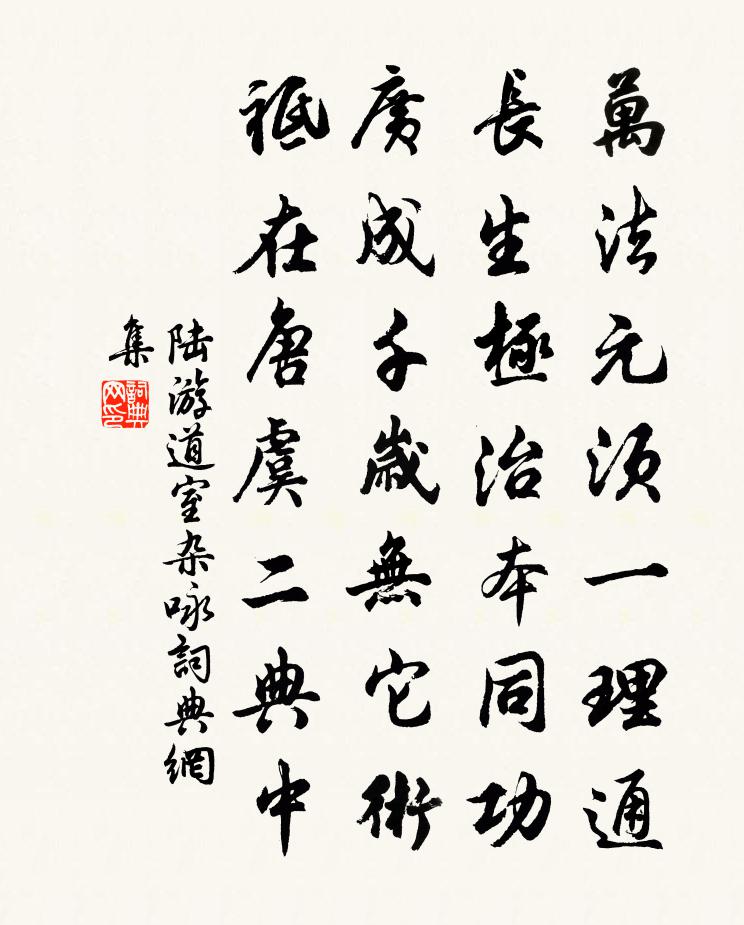 萬法元須一理通
長生極治本同功
廣成千歲無它術
祗在唐虞二典中
陆游道室杂咏詞典網
集
詞典网印